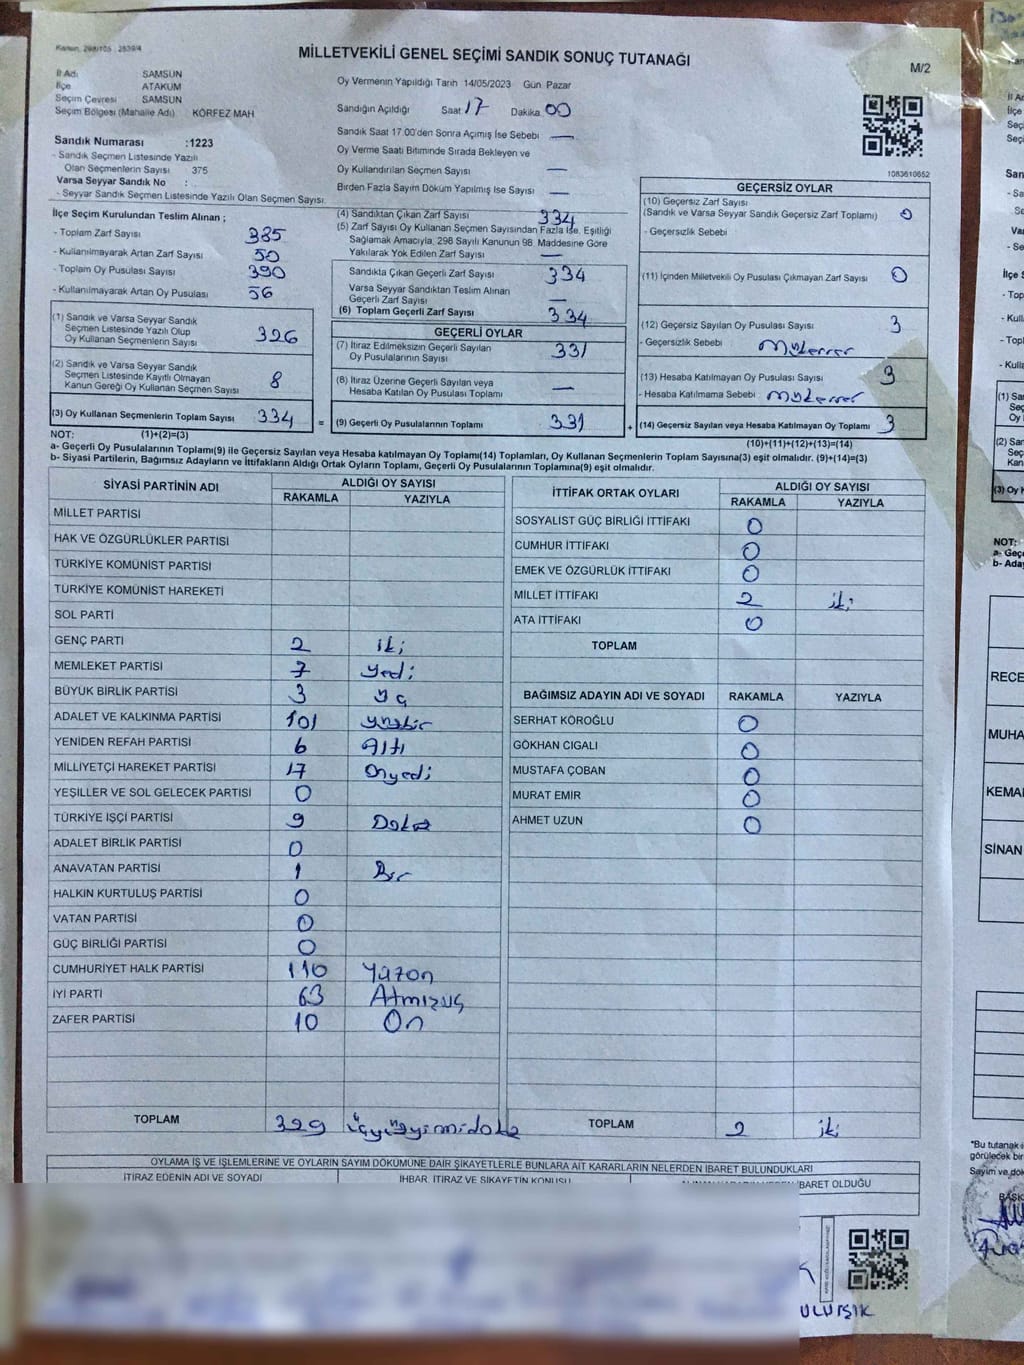 Kanun, 298/105 : 2839/4
MİLLETVEKİLİ GENEL SEÇİMİ SANDIK SONUÇ TUTANAĞI
M/2
İl Adı SAMSUN
İlçe ATAKUM
Seçim Çevresi SAMSUN
Seçim Bölgesi (Mahalle Adı) KÖRFEZ MAH
Oy Vermenin Yapıldığı Tarih 14/05/2023 Gün Pazar
Sandığın Açıldığı Saat 17 Dakika 00
Sandık Saat 17.00'den Sonra Açımış İse Sebebi —
Oy Verme Saati Bitiminde Sırada Bekleyen ve
Oy Kullandırılan Seçmen Sayısı —
Birden Fazla Sayım Döküm Yapılmış İse Sayısı —
1083610652
Sandık Numarası :1223
- Sandık Seçmen Listesinde Yazılı
Olan Seçmenlerin Sayısı 375
Varsa Seyyar Sandık No :
- Seyyar Sandık Seçmen Listesinde Yazılı Olan Seçmen Sayısı:
İlçe Seçim Kurulundan Teslim Alınan ;
- Toplam Zarf Sayısı 385
- Kullanılmayarak Artan Zarf Sayısı 50
- Toplam Oy Pusulası Sayısı 390
- Kullanılmayarak Artan Oy Pusulası 56
(1) Sandık ve Varsa Seyyar Sandık
Seçmen Listesinde Yazılı Olup
Oy Kullanan Seçmenlerin Sayısı 326
(2) Sandık ve Varsa Seyyar Sandık
Seçmen Listesinde Kayıtlı Olmayan
Kanun Gereği Oy Kullanan Seçmen Sayısı 8
(3) Oy Kullanan Seçmenlerin Toplam Sayısı 334
(4) Sandıktan Çıkan Zarf Sayısı 334
(5) Zarf Sayısı Oy Kullanan Seçmen Sayısından Fazla İse, Eşitliği
Sağlamak Amacıyla, 298 Sayılı Kanunun 98. Maddesine Göre
Yakılarak Yok Edilen Zarf Sayısı —
Sandıkta Çıkan Geçerli Zarf Sayısı 334
Varsa Seyyar Sandıktan Teslim Alınan
Geçerli Zarf Sayısı —
(6) Toplam Geçerli Zarf Sayısı 334
GEÇERLİ OYLAR
(7) İtiraz Edilmeksizin Geçerli Sayılan
Oy Pusulalarının Sayısı 331
(8) İtiraz Üzerine Geçerli Sayılan veya
Hesaba Katılan Oy Pusulası Toplamı —
= (9) Geçerli Oy Pusulalarının Toplamı 331
GEÇERSİZ OYLAR
(10) Geçersiz Zarf Sayısı
(Sandık ve Varsa Seyyar Sandık Geçersiz Zarf Toplamı) 0
- Geçersizlik Sebebi
(11) İçinden Milletvekili Oy Pusulası Çıkmayan Zarf Sayısı 0
(12) Geçersiz Sayılan Oy Pusulası Sayısı 3
- Geçersizlik Sebebi Mükerrer
(13) Hesaba Katılmayan Oy Pusulası Sayısı 3
- Hesaba Katılmama Sebebi Mükerrer
+ (14) Geçersiz Sayılan veya Hesaba Katılmayan Oy Toplamı 3
NOT: (1)+(2)=(3)
(10)+(11)+(12)+(13)=(14)
a- Geçerli Oy Pusulalarının Toplamı(9) ile Geçersiz Sayılan veya Hesaba katılmayan Oy Toplamı(14) Toplamları, Oy Kullanan Seçmenlerin Toplam Sayısına(3) eşit olmalıdır. (9)+(14)=(3)
b- Siyasi Partilerin, Bağımsız Adayların ve İttifakların Aldığı Ortak Oyların Toplamı, Geçerli Oy Pusulalarının Toplamına(9) eşit olmalıdır.
SİYASİ PARTİNİN ADI ALDIĞI OY SAYISI
RAKAMLA YAZIYLA
MİLLET PARTİSİ
HAK VE ÖZGÜRLÜKLER PARTİSİ
TÜRKİYE KOMÜNİST PARTİSİ
TÜRKİYE KOMÜNİST HAREKETİ
SOL PARTİ
GENÇ PARTİ 2 iki
MEMLEKET PARTİSİ 7 yedi
BÜYÜK BİRLİK PARTİSİ 3 üç
ADALET VE KALKINMA PARTİSİ 101 yüzbir
YENİDEN REFAH PARTİSİ 6 Altı
MİLLİYETÇİ HAREKET PARTİSİ 17 Onyedi
YEŞİLLER VE SOL GELECEK PARTİSİ 0
TÜRKİYE İŞÇİ PARTİSİ 9 Dokuz
ADALET BİRLİK PARTİSİ 0
ANAVATAN PARTİSİ 1 Bir
HALKIN KURTULUŞ PARTİSİ 0
VATAN PARTİSİ 0
GÜÇ BİRLİĞİ PARTİSİ 0
CUMHURİYET HALK PARTİSİ 110 Yüzon
İYİ PARTİ 63 Atmışüç
ZAFER PARTİSİ 10 On
TOPLAM 329 üçyüzyirmidokuz
İTTİFAK ORTAK OYLARI ALDIĞI OY SAYISI
RAKAMLA YAZIYLA
SOSYALİST GÜÇ BİRLİĞİ İTTİFAKI 0
CUMHUR İTTİFAKI 0
EMEK VE ÖZGÜRLÜK İTTİFAKI 0
MİLLET İTTİFAKI 2 iki
ATA İTTİFAKI 0
TOPLAM
BAĞIMSIZ ADAYIN ADI VE SOYADI RAKAMLA YAZIYLA
SERHAT KÖROĞLU 0
GÖKHAN CIGALI 0
MUSTAFA ÇOBAN 0
MURAT EMİR 0
AHMET UZUN 0
TOPLAM 2 iki
OYLAMA İŞ VE İŞLEMLERİNE VE OYLARIN SAYIM DÖKÜMÜNE DAİR ŞİKAYETLERLE BUNLARA AİT KARARLARIN NELERDEN İBARET BULUNDUKLARI
İTİRAZ EDENİN ADI VE SOYADI İHBAR, İTİRAZ VE ŞİKAYETİN KONUSU İBARET OLDUĞU
ULUIŞIK
RECE
MUHA
KEMAL
SİNAN
*Bu tutanak
görülecek bir
Sayım ve dök